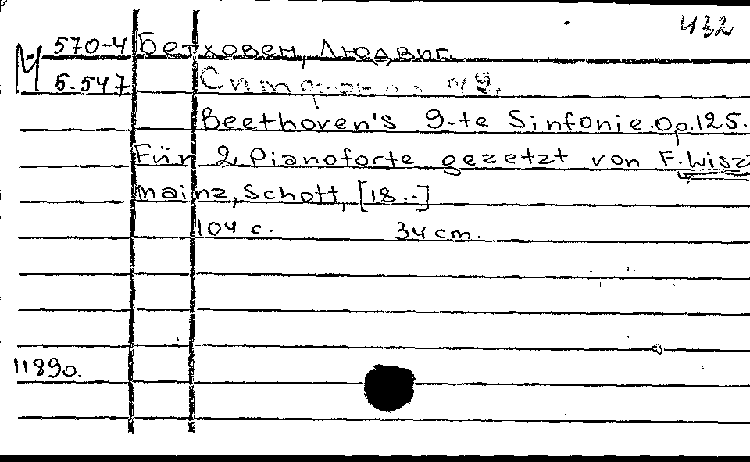 432
570-4 Бетховен, Людвиг.
Б.547 Симфония №9.
Beethoven's 9-te Sinfonie. Op. 125.
Für 2 Pianoforte gezetzt von F. Lisz
mainz, Schott, [18..]
104 c. 34 cm.
1189o.